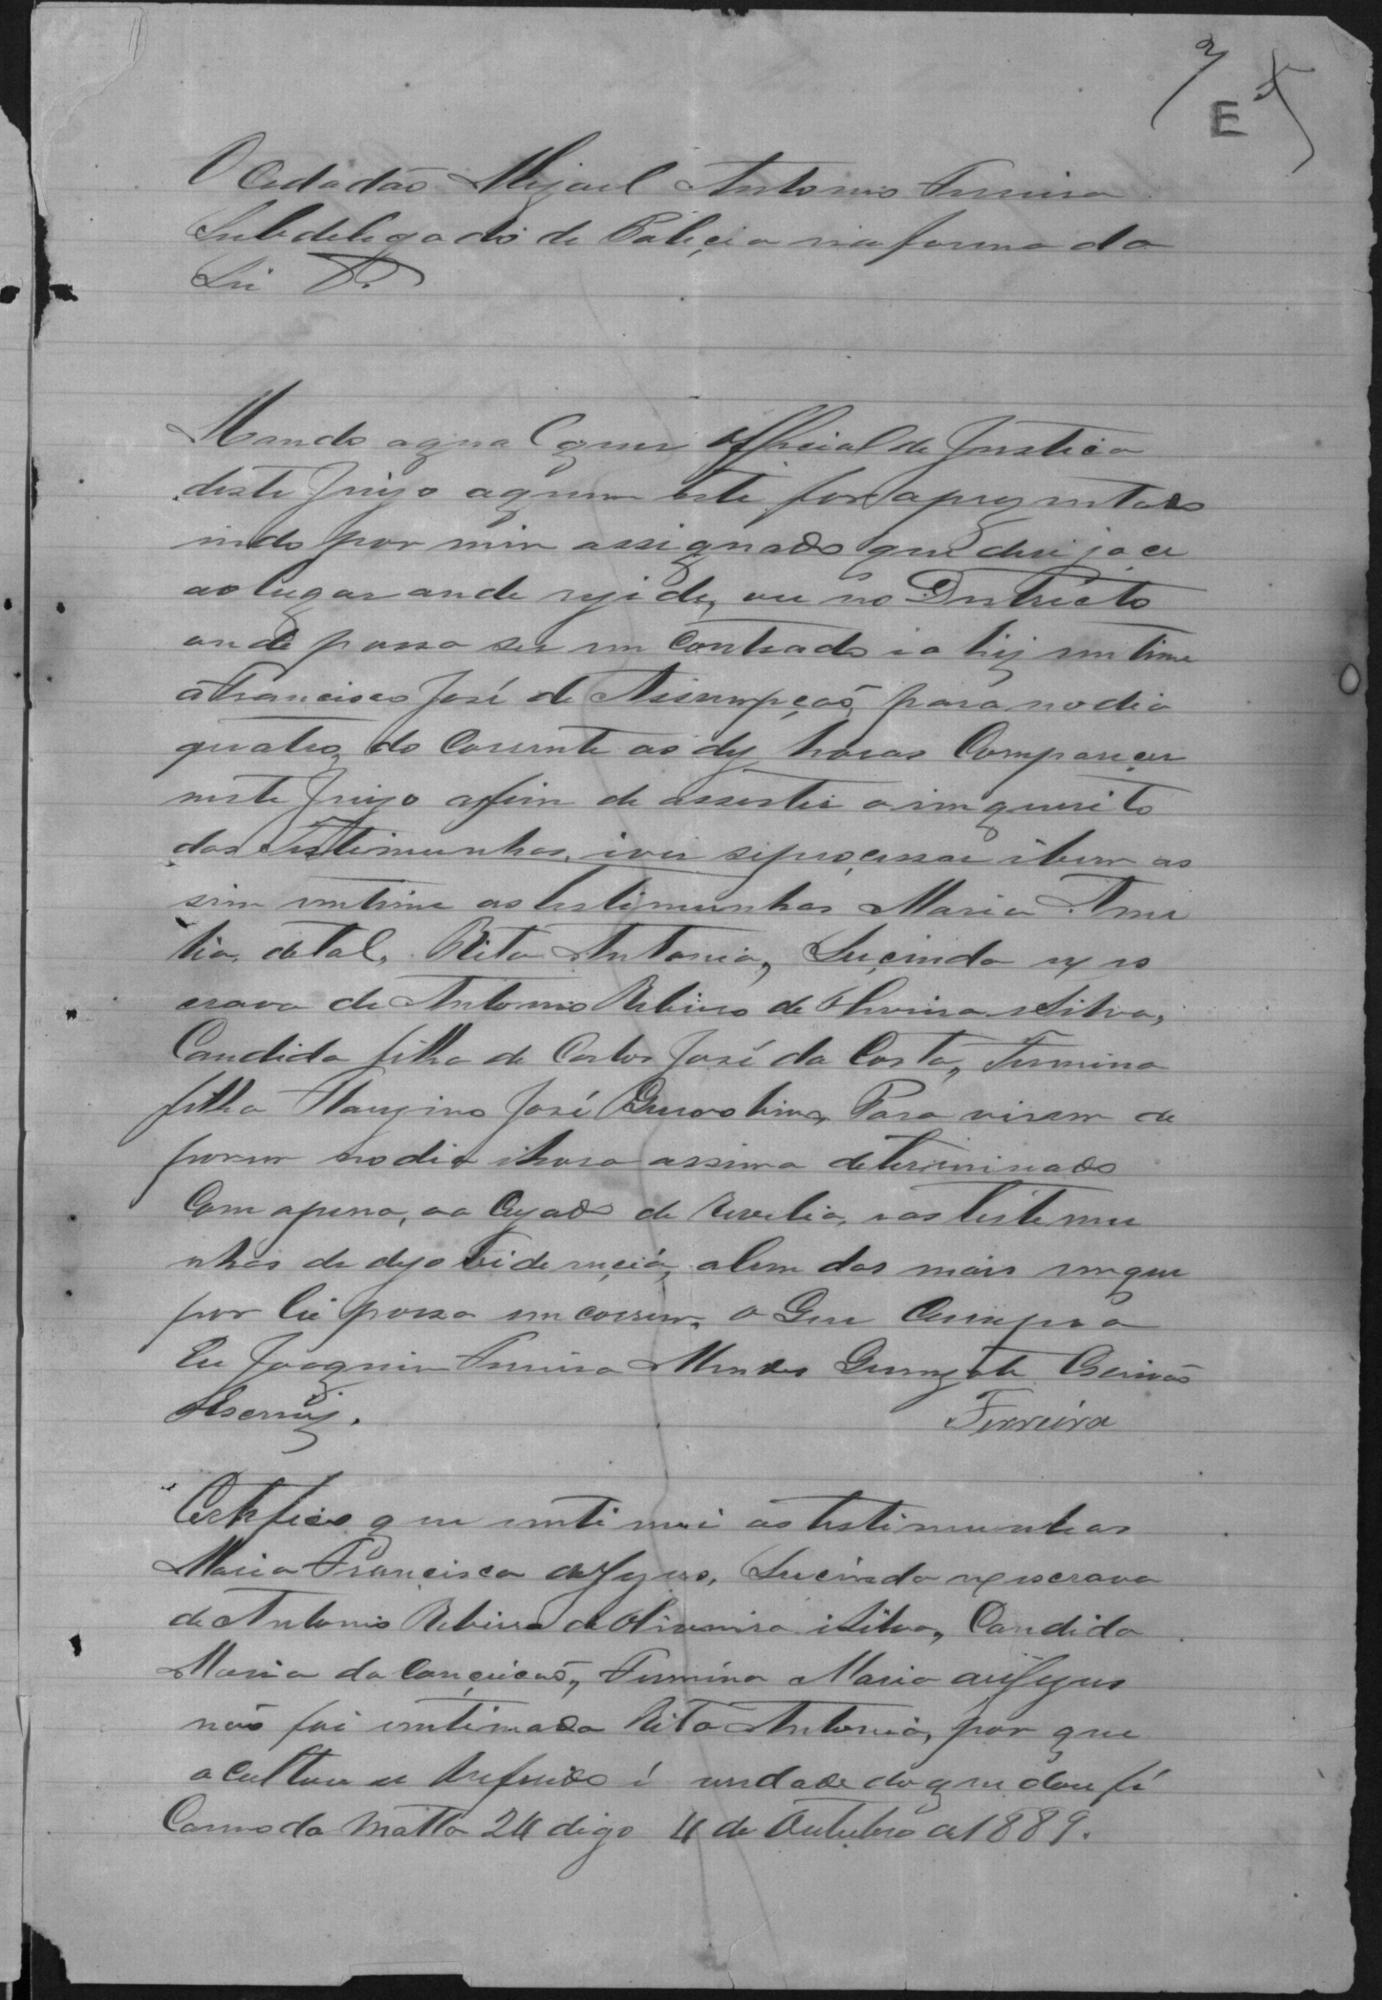 E
O Cidadão Miguel Antonio Ferreira
Subdelegado de Policia na forma da
Lei &.
Mando aqual quer official de Justica
deste Juizo aquem este for aprezentado
indo por mim assignado que deri jace
ao lugar onde rezide, ou no Districto
onde possa ser in contrado i ahi intime
á Francisco José de Assumpção, para no dia
quatro do Corrente as dez horas Comparecer
neste Juizo afim de assestir o imquerito
das Testimunhas, i ver siproçessar ibem as
sim intime as testimunhas Maria Ame
lia de tal, Rita Antonia, Luçinda ex es
crava de Antonio Ribeiro de Oliveira e Silva,
Candida filha de Carlos José da Costa, Firmina
filha José Para virem de
porem no dia ihora assima determinado
Com apena, ao de Revelia, e as testemu
nhas de dezobidençia, alem das mais emque
por lei possa incorrer. O Que Cumpra
Eu Joaquim Ferreira Mendes Escrivão
Escrivi.
Ferreira
Certifico que intimei as testimunhas
Maria Francisca de Jezus, Lucinda ex escrava
de Antonio Ribeiro de Oliveira i Silva, Candida
Maria da Conçeicão, Firmina Maria de Jezus
não foi intimada Rita Antonia, por que
ocultou se Referido é verdade do que dou fé
Carmo da Matta 24 digo 4 de Outubro de 1889.